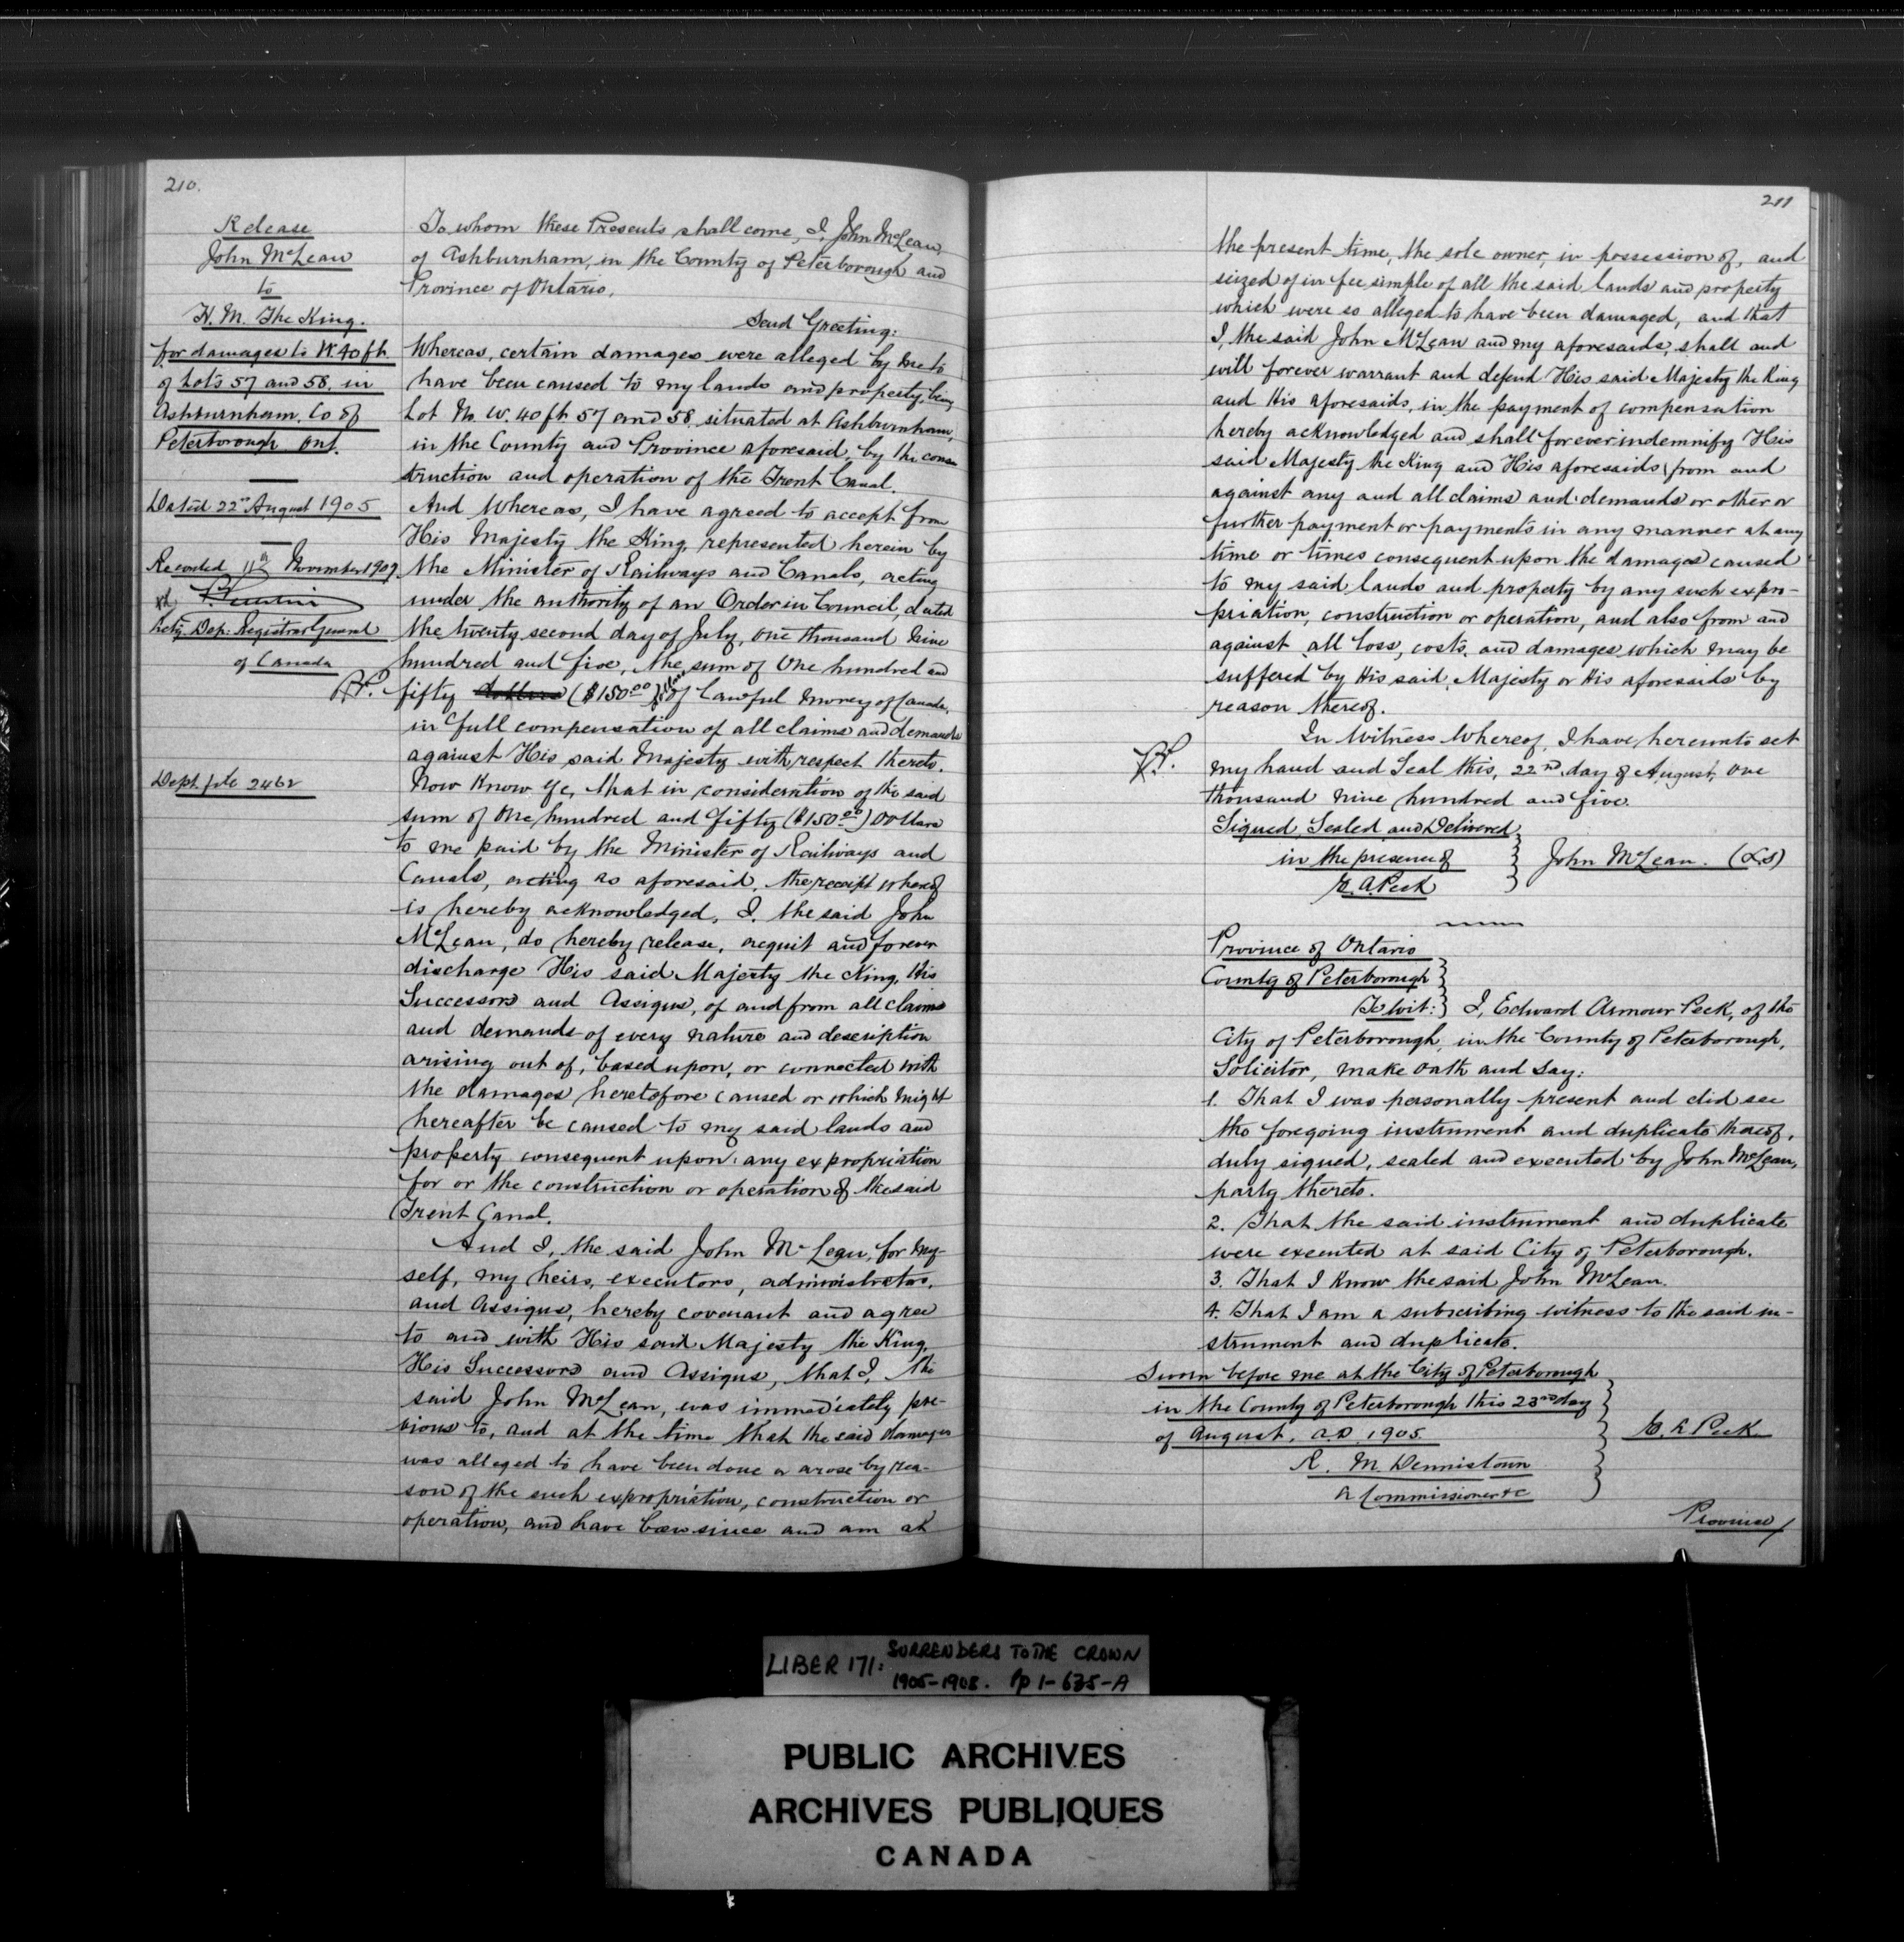 210.
Release
John McLean
to
H. M. The King.
for damages to W. 40 ft.
of Lots 57 and 58. in
Ashburnham. Co of
Peterborough Ont.
Dated 22nd August 1905
Recorded 11th November 1907
Actg. Dep. Registrar General
of Canada
Dept. file 2462
To whom these Presents shall come, I, John McLean,
of Ashburnham, in the County of Peterborough and
Province of Ontario,
Send Greeting:
Whereas, certain damages were alleged by me to
have been caused to my lands and property, being
Lot No. W. 40 ft 57 and 58, situated at Ashburnham,
in the County and Province aforesaid, by the cons-
truction and operation of the Trent Canal.
And Whereas, I have agreed to accept from
His Majesty the King, represented herein by
the Minister of Railways and Canals, acting
under the authority of an Order in Council, dated
the twenty second day of July, one thousand nine
hundred and five, the sum of One hundred and
fifty dollars ($150.00) dollars of lawful money of Canada,
in full compensation of all claims and demands
against His said Majesty with respect thereto.
Now Know Ye, that in consideration of the said
sum of One hundred and fifty ($150.00) Dollars
to me paid by the Minister of Railways and
Canals, acting as aforesaid, the receipt whereof
is hereby acknowledged, I, the said John
McLean, do hereby release, acquit and forever
discharge His said Majesty the King, His
Successors and Assigns, of and from all claims
and demands of every nature and description
arising out of, based upon, or connected with
the damages heretofore caused or which might
hereafter be caused to my said lands and
property consequent upon any expropriation
for or the construction or operation of the said
Trent Canal.
And I, the said John McLean, for my-
self, my heirs, executors, administrators,
and Assigns, hereby covenant and agree
to and with His said Majesty the King,
His Successors and Assigns, that I, the
said John McLean, was immediately pre-
vious to, and at the time that the said damages
was alleged to have been done or arose by rea-
son of the such expropriation, construction or
operation, and have been since and am at
211
the present time, the sole owner, in possession of, and
seized of in fee simple of all the said lands and property
which were so alleged to have been damaged, and that
I, the said John McLean and my aforesaids, shall and
will forever warrant and defend His said Majesty the King
and His aforesaids, in the payment of compensation
hereby acknowledged and shall forever indemnify His
said Majesty the King and His aforesaids from and
against any and all claims and demands or other or
further payment or payments in any manner at any
time or times consequent upon the damages caused
to my said lands and property by any such expro-
priation, construction or operation, and also from and
against all loss, costs, and damages which may be
suffered by His said Majesty or His aforesaids by
reason thereof.
In Witness Whereof, I have hereunto set
my hand and Seal this, 22nd day of August, one
thousand nine hundred and five.
Signed, Sealed and Delivered
in the presence of
E. A. Peck
John McLean. (LS)
Province of Ontario
County of Peterborough
To Wit: I, Edward Armour Peck, of the
City of Peterborough, in the County of Peterborough,
Solicitor, make oath and say:
1. That I was personally present and did see
the foregoing instrument and duplicate thereof,
duly signed, sealed and executed by John McLean,
party thereto.
2. That the said instrument and duplicate
were executed at said City of Peterborough.
3. That I know the said John McLean.
4. That I am a subscribing witness to the said in-
strument and duplicate.
Sworn before me at the City of Peterborough
in the County of Peterborough this 23rd day
of August, A.D. 1905
E. A Peck
R. M. Dennistoun
A Commissioner &c
Province
LIBER 171: SURRENDERS TO THE CROWN
1905-1908. Pp 1-635-A
PUBLIC ARCHIVES
ARCHIVES PUBLIQUES
CANADA